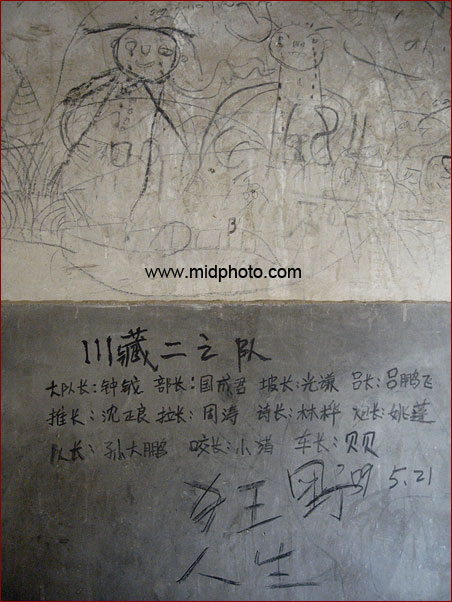 www.midphoto.com
川藏二之队
大队长:钟锐 部长:国成君 坡长:光谦 吕长:吕鹏飞
推长:沈正良 拉长:周涛 诗长:林桦 姚莲
队长:孙大鹏 咬长:小猪 车长:贝贝
狂野 5.21
人生